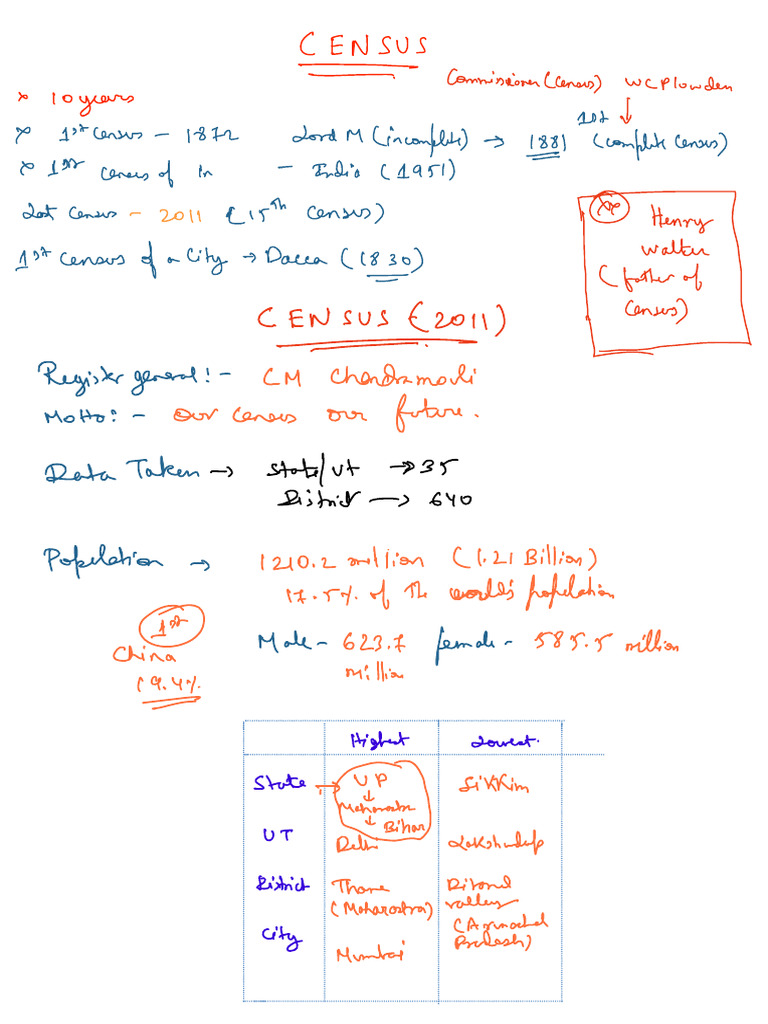 CENSUS
Commissioner (Census) WC Plowden
* 10 years
* 1st Census – 1872 Lord M (incomplete) → 1881 1st (complete Census)
* 1st Census of In – India (1951)
Last Census – 2011 (15th Census)
1st Census of a City → Dacca (1830)
** Henry
Walter
(father of
Census)
CENSUS (2011)
Register general:- CM Chandramouli
Motto:- Our Census our future.
Data Taken → State/UT → 35
District → 640
Population → 1210.2 million (1.21 Billion)
17.5% of the world's population
1st
China
19.4%
Male - 623.7 million female - 585.5 million
Highest Lowest.
State → UP Sikkim
↓
Maharastra
↓ Bihar
UT Delhi Lakshadeep
District Thane Diband
(Maharastra) valley
(Arunachal
Pradesh)
City Mumbai